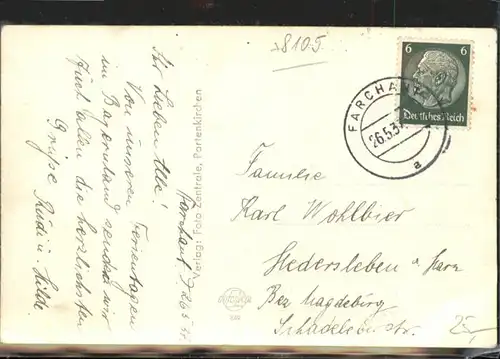 8105
Farchant, 26.5.
Ihr Lieben Alle!
Von unseren Ferientagen
im Bayernland senden wir
Euch allen die herzlichsten
Grüße Rudi u. Hilde
Verlag: Foto Zentrale, Partenkirchen
6 6
Deutsches Reich
FARCHANT
26.5.3
a
Familie
Karl Wohlbier
Hedersleben a Harz
Bez Magdeburg
str.
25,-